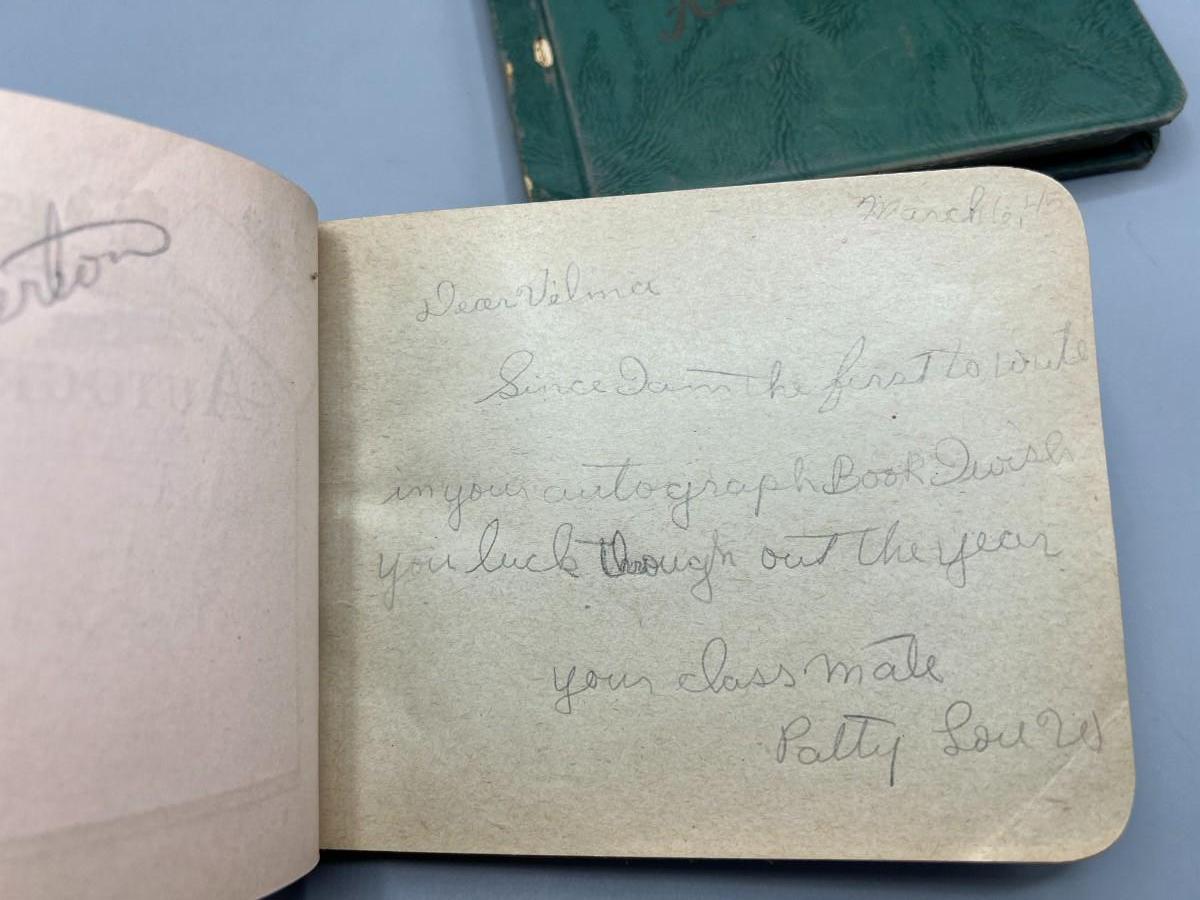 erton
March 6, 45
Dear Velma
Since I am the first to write
in your autograph Book I wish
you luck through out the year
your class mate
Patty Lou